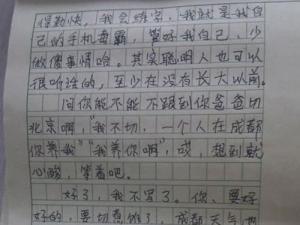 保勤快，我会练字，我就是我自
己的手机毒霸，管好我自己，少
做傻事情哈。其实聪明人也可以
很听话的，至少在没有长大以前。
问你能不能不跟到你爸爸切
北京啊，"我不切，一个人在成都
你养我""我养你啊"，哎，想到就
心酸，等着吧。
好了，我不写了。你、要好
好的，要切煮饭了，成都天气